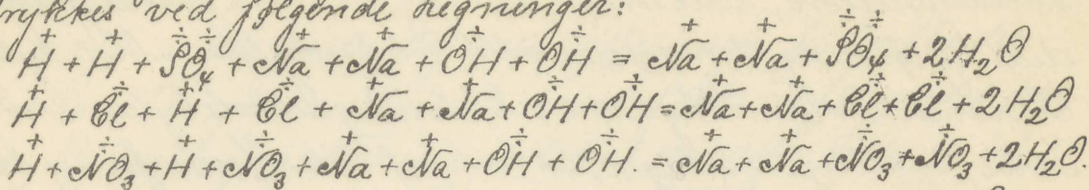 rykkes ved følgende Ligninger:
H⁺ + H⁺ + SO₄÷÷ + Na⁺ + Na⁺ + OH÷ + OH÷ = Na⁺ + Na⁺ + SO₄÷÷ + 2H₂O
H⁺ + Cl÷ + H⁺ + Cl÷ + Na⁺ + Na⁺ + OH÷ + OH÷ = Na⁺ + Na⁺ + Cl÷ + Cl÷ + 2H₂O
H⁺ + NO₃÷ + H⁺ + NO₃÷ + Na⁺ + Na⁺ + OH÷ + OH÷. = Na⁺ + Na⁺ + NO₃÷ + NO₃÷ + 2H₂O.